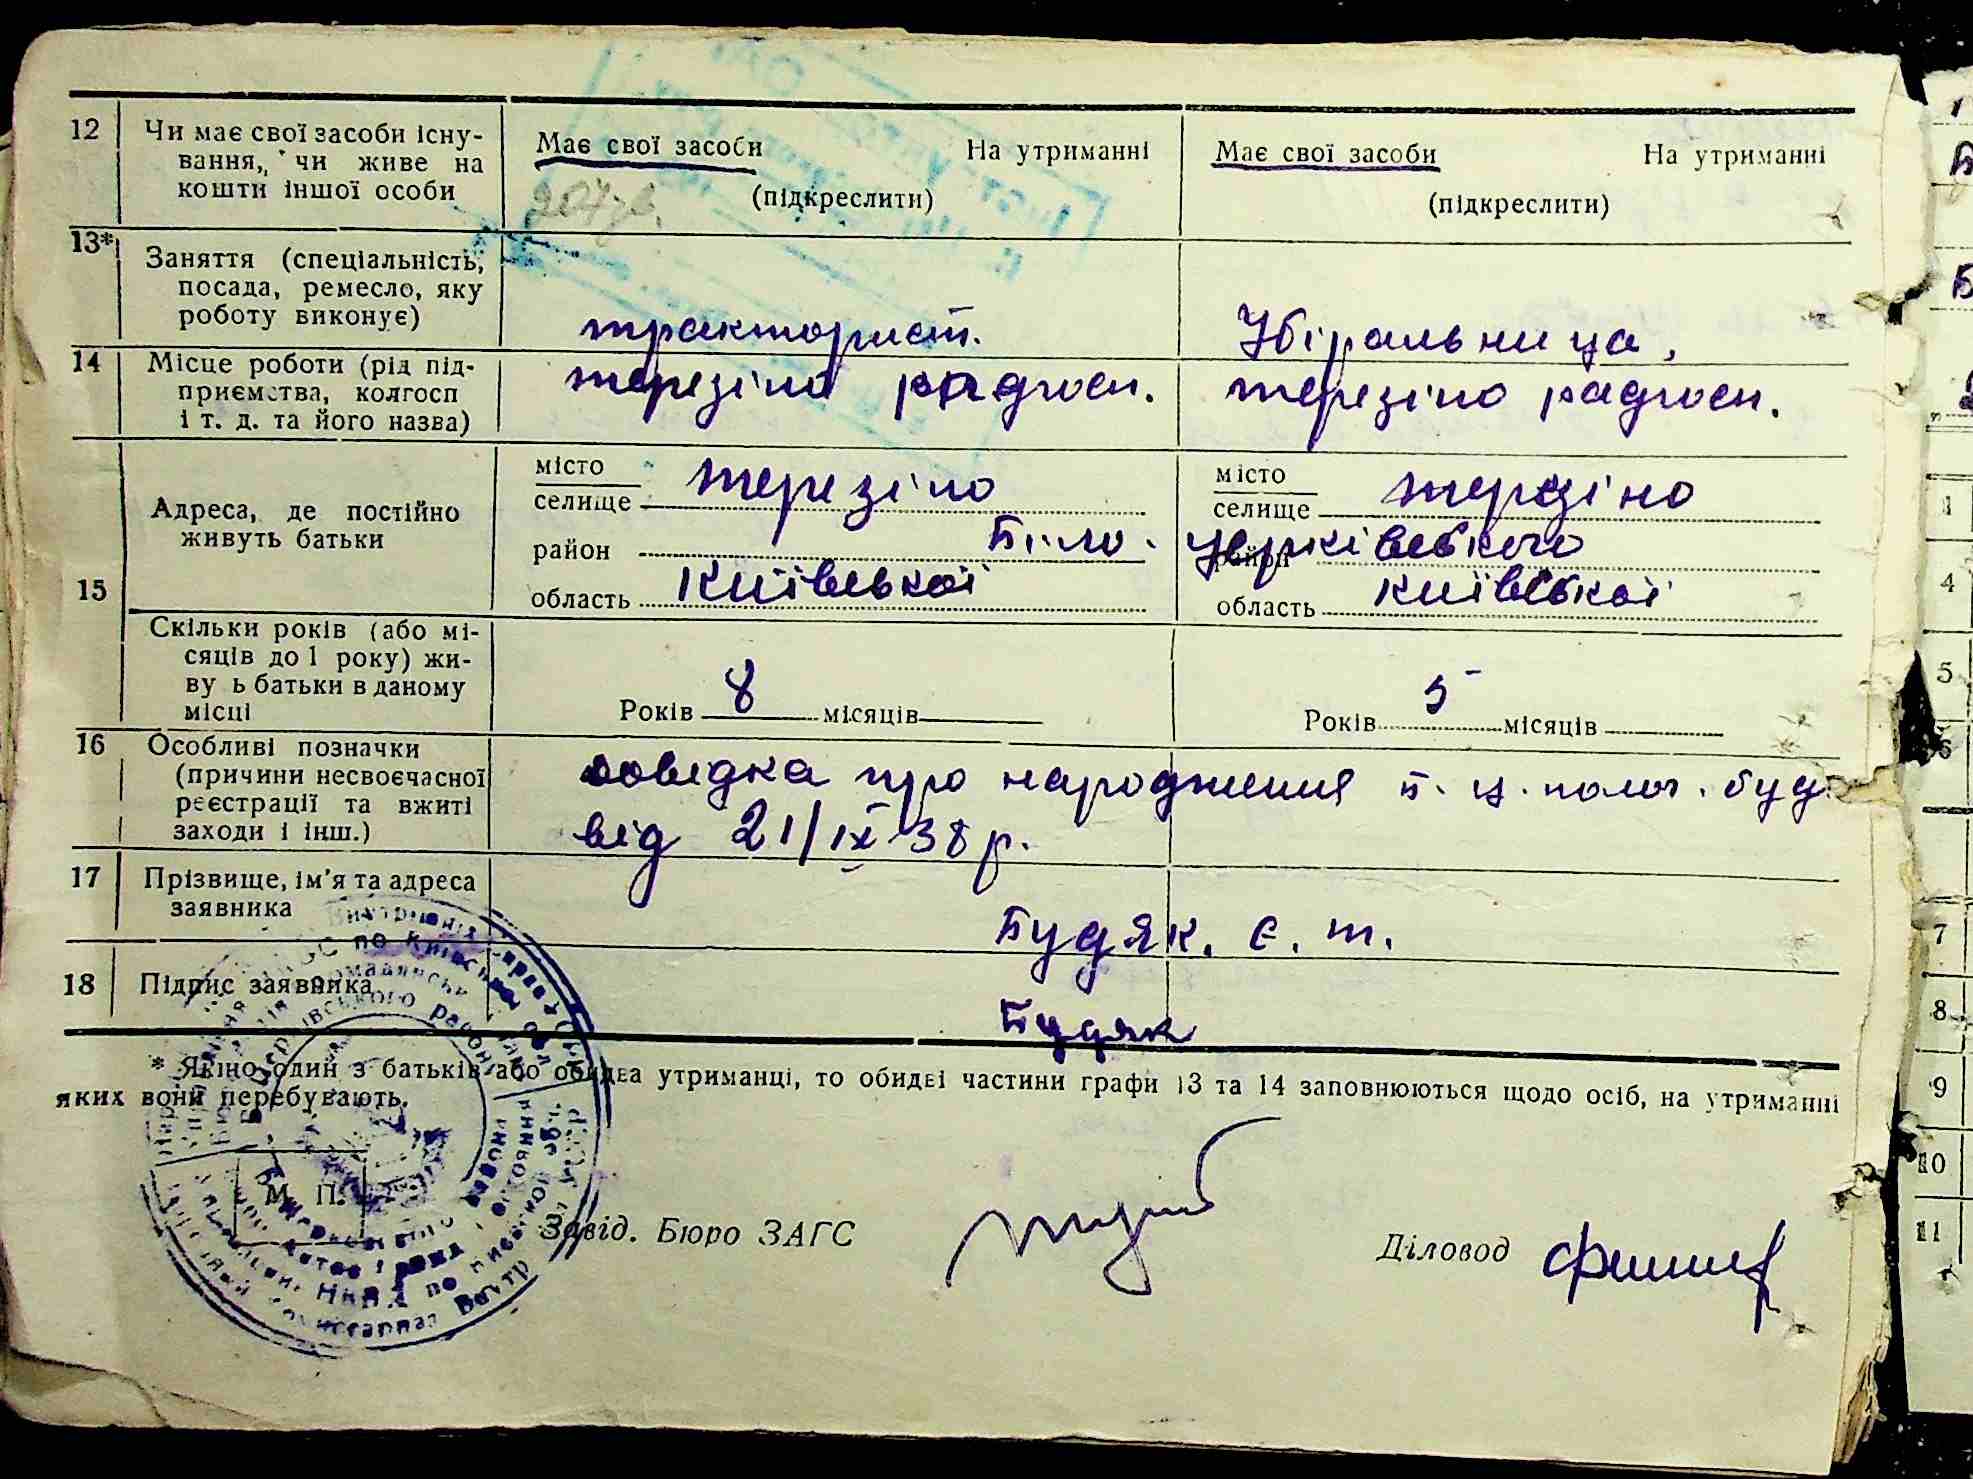 12 Чи має свої засоби існу-
вання, чи живе на
кошти іншої особи
Має свої засоби На утриманні
(підкреслити)
Має свої засоби На утриманні
(підкреслити)
13* Заняття (спеціальність,
посада, ремесло, яку
роботу виконує)
тракторист.
Убіральница,
14 Місце роботи (рід під-
приємства, колгосп
і т. д. та його назва)
терезіно радгосп.
терезіно радгосп.
15
Адреса, де постійно
живуть батьки
місто
селище терезіно
район Біло-церківського
область київської
місто
селище терезіно
район
область київської
Скільки років (або мі-
сяців до 1 року) жи-
ву ь батьки в даному
місці
Років 8 місяців
Років 5 місяців
16 Особливі позначки
(причини несвоєчасної
реєстрації та вжиті
заходи і інш.)
довідка про народження б. ц. полог. буд.
від 21/IX 38 р.
17 Прізвище, ім'я та адреса
заявника
Будяк. Є. т.
18 Підпис заявника
Будяк
* Якщо один з батьків або обидва утриманці, то обидві частини графи 13 та 14 заповнюються щодо осіб, на утриманні
яких вони перебувають.
М. П.
Завід. Бюро ЗАГС
Діловод
1
4
5
6
7
8
9
10
11